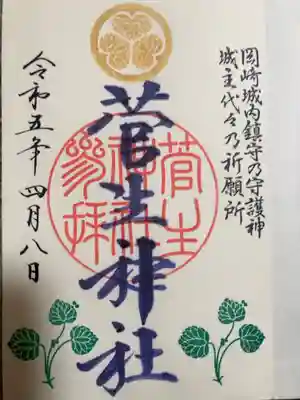 岡崎城内鎮守乃守護神
城主代々乃祈願所
菅生神社
菅生
神社
参拝
令和五年四月八日